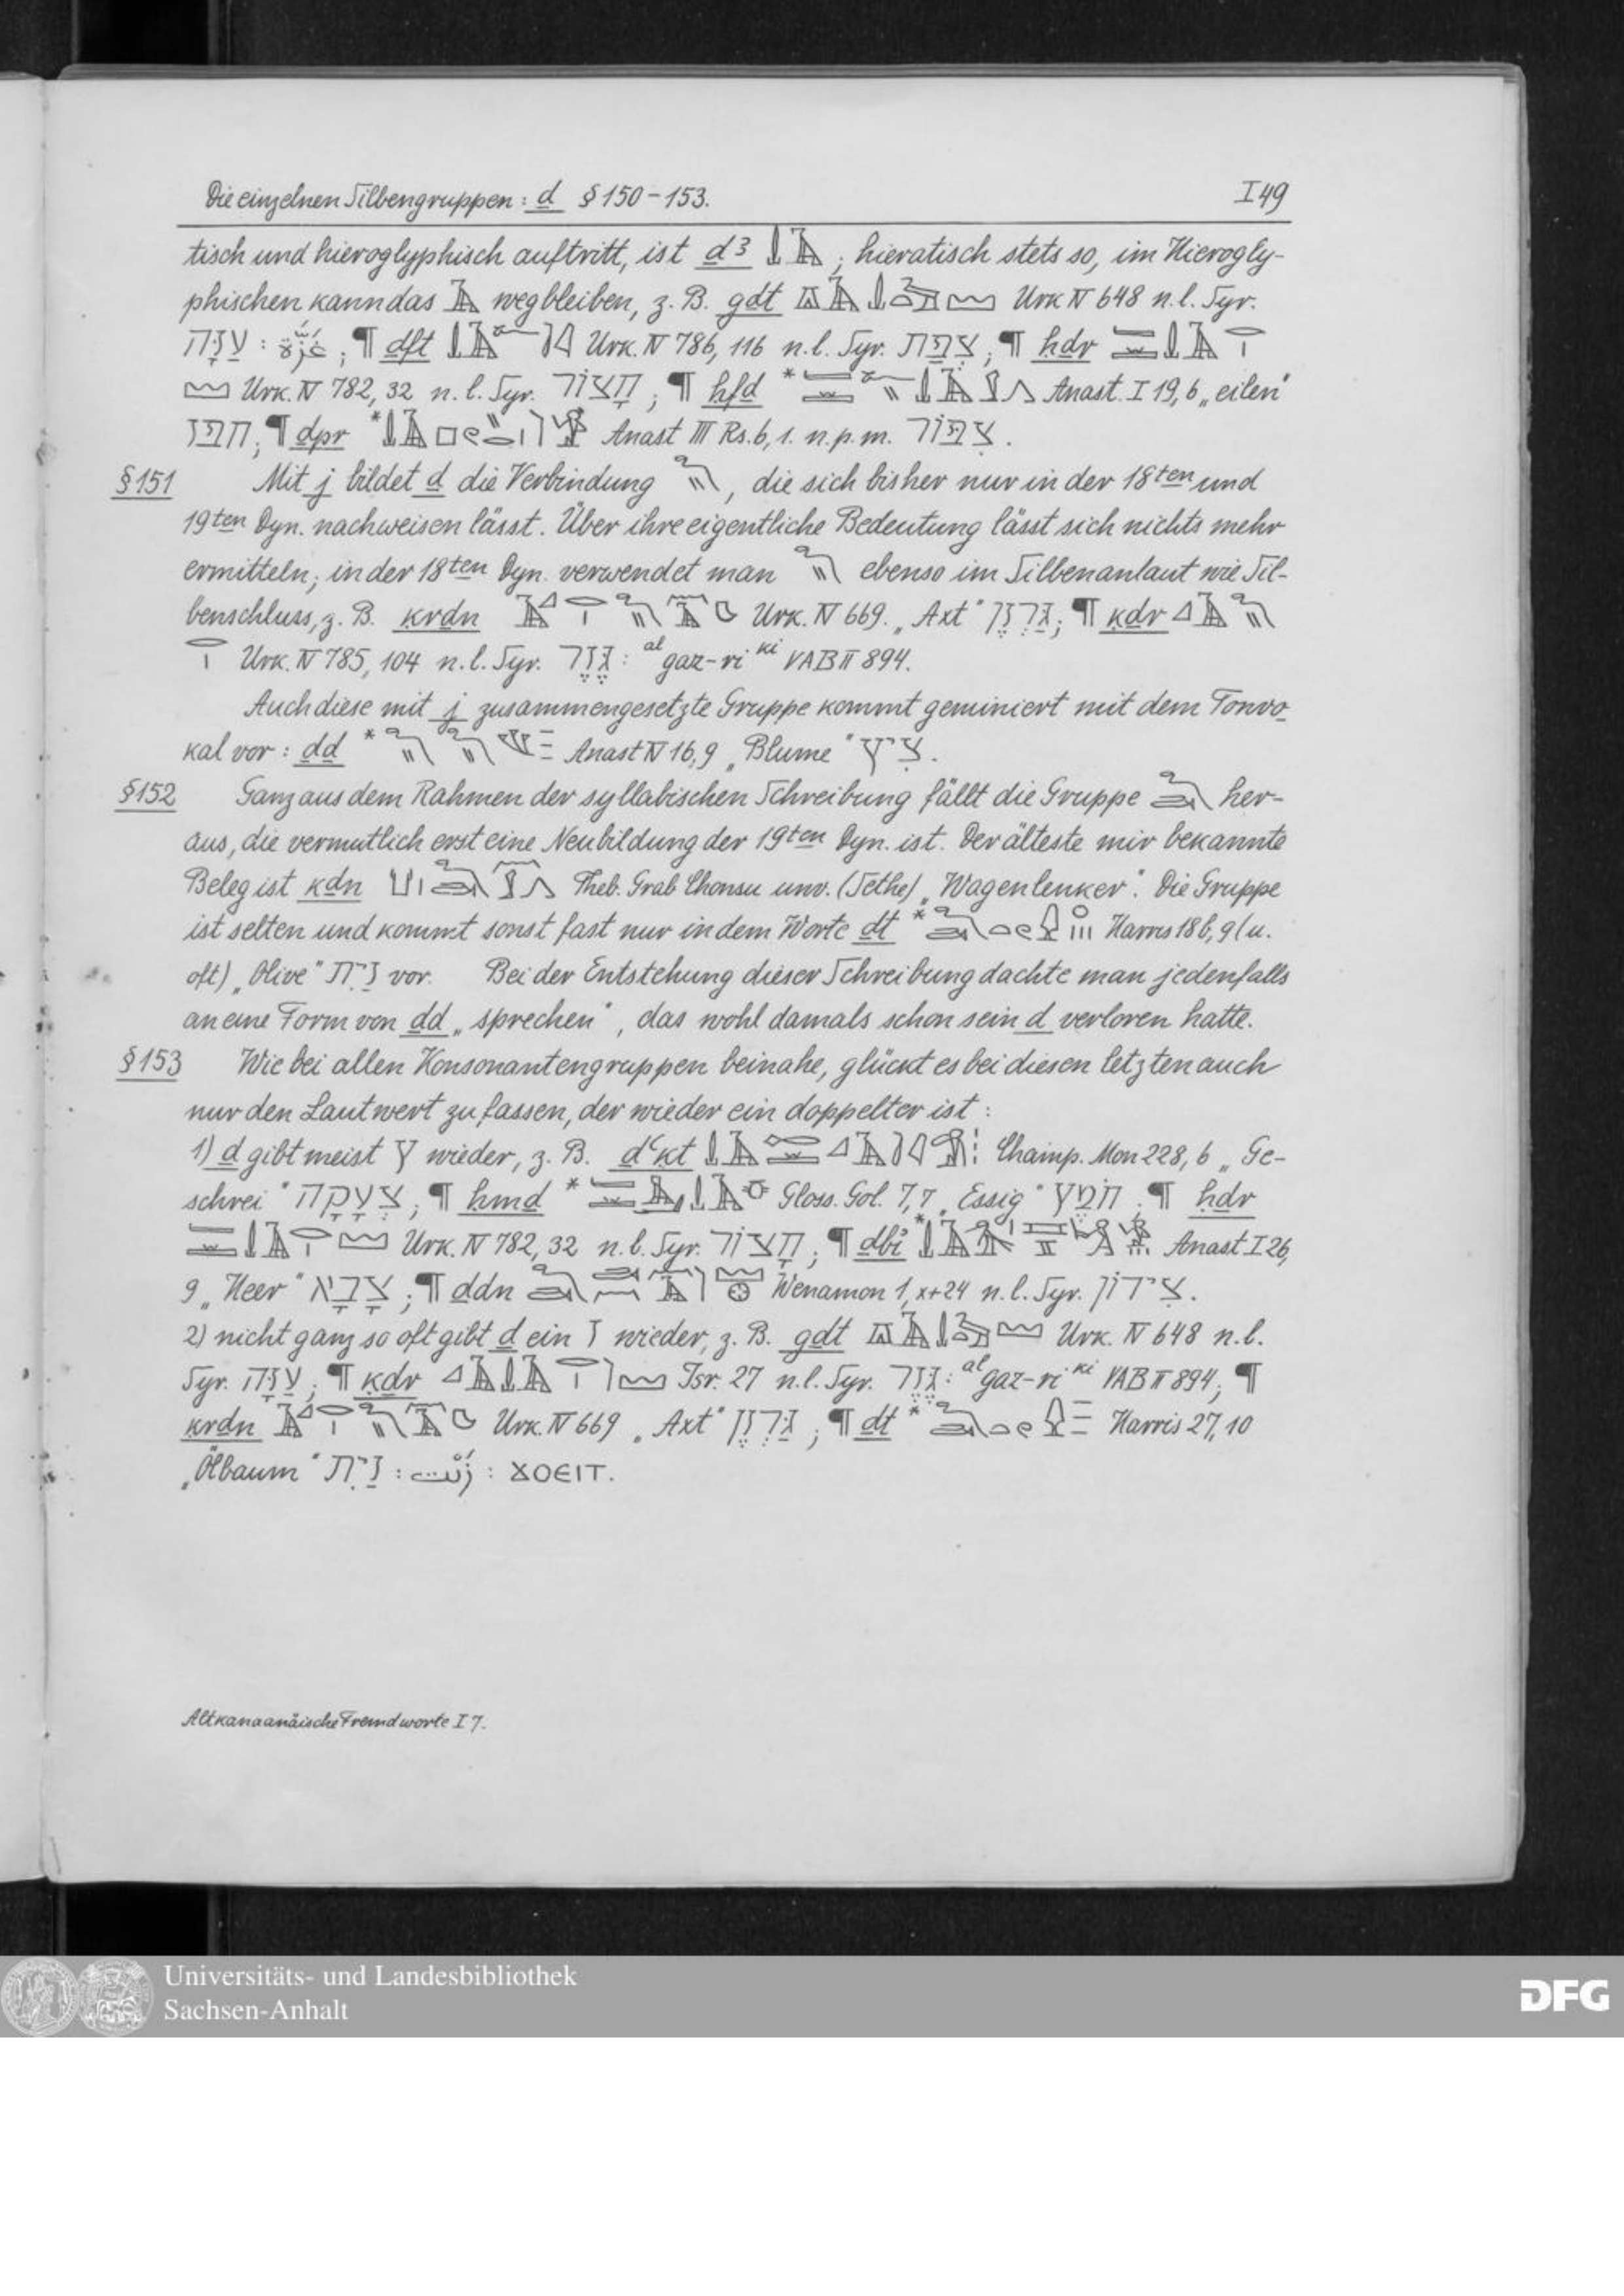 Die einzelnen Silbengruppen: ḏ § 150-153. I 49
tisch und hieroglyphisch auftritt, ist ḏꜣ ; hieratisch stets so, im Hierogly-
phischen kann das wegbleiben, z. B. gḏt Urk IV 648 n. l. Syr.
עזה : غزة ; ¶ ḏft Urk. IV 786, 116 n. l. Syr. צפת ; ¶ ḥḏr
Urk. IV 782, 32 n. l. Syr. חצור ; ¶ ḥfḏ * Anast. I 19,6 „eilen"
חפז ; ¶ ḏpr * Anast III Rs. 6, 1. n. p. m. צפור.
§ 151 Mit j bildet ḏ die Verbindung , die sich bisher nur in der 18ten und
19ten Dyn. nachweisen lässt. Über ihre eigentliche Bedeutung lässt sich nichts mehr
ermitteln; in der 18ten Dyn. verwendet man ebenso im Silbenanlaut wie Sil-
benschluss, z. B. ḳrḏn Urk. IV 669. „Axt" גרזן ; ¶ ḳḏr
Urk. IV 785, 104 n. l. Syr. גזר : al gaz-ri ki VAB II 894.
Auch diese mit j zusammengesetzte Gruppe kommt geminiert mit dem Tonvo-
kal vor: ḏḏ * Anast IV 16,9 „Blume" ציץ.
§ 152 Ganz aus dem Rahmen der syllabischen Schreibung fällt die Gruppe her-
aus, die vermutlich erst eine Neubildung der 19ten Dyn. ist. Der älteste mir bekannte
Beleg ist kḏn Theb. Grab Chonsu unv. (Sethe) „Wagenlenker". Die Gruppe
ist selten und kommt sonst fast nur in dem Worte ḏt * Harris 18b, 9 (u.
oft) „Olive" זית vor. Bei der Entstehung dieser Schreibung dachte man jedenfalls
an eine Form von ḏd „sprechen", das wohl damals schon sein d verloren hatte.
§ 153 Wie bei allen Konsonantengruppen beinahe, glückt es bei diesen letzten auch
nur den Lautwert zu fassen, der wieder ein doppelter ist:
1) ḏ gibt meist ץ wieder, z. B. ḏꜥḳt Champ. Mon 228, 6 „Ge-
schrei" צעקה ; ¶ ḥmḏ * Gloss. Gol. 7,7 „Essig" חמץ ; ¶ ḥḏr
Urk. IV 782, 32 n. l. Syr. חצור ; ¶ ḏbi * Anast I 26,
9 „Heer" צבא ; ¶ ḏdn Wenamon 1, x+24 n. l. Syr. צידון.
2) nicht ganz so oft gibt ḏ ein ז wieder, z. B. gḏt Urk. IV 648 n. l.
Syr. עזה ; ¶ ḳḏr Isr. 27 n. l. Syr. גזר : al gaz-ri ki VAB II 894 ; ¶
ḳrḏn Urk. IV 669 „Axt" גרזן ; ¶ ḏt * Harris 27, 10
„Ölbaum" זית : زيت : ϪΟЄΙΤ.
Altkanaanäische Fremdworte I 7.
Universitäts- und Landesbibliothek
Sachsen-Anhalt
DFG